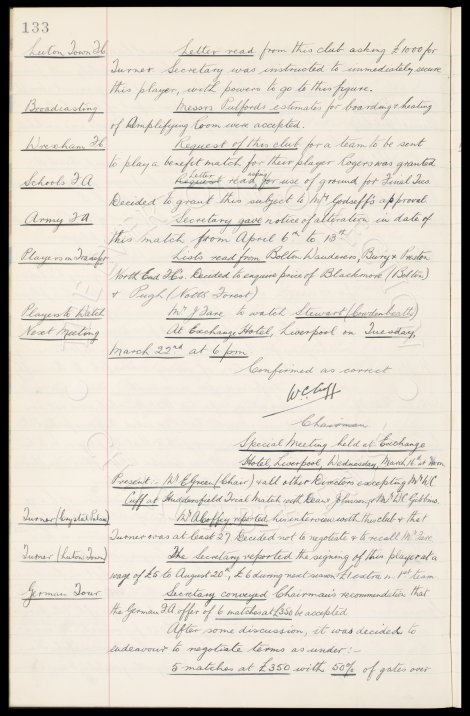 133
Luton Town F.C. Letter read from this club asking £1000 for
Turner Secretary was instructed to immediately secure
this player, with powers to go to this figure.
Broadcasting Messrs Pulfords estimates for boarding & heating
of Amplifying Room were accepted.
Wrexham F.C. Request of this club for a team to be sent
to play a benefit match for their player Rogers was granted
Schools F.A Letter read for use of ground for Final Ties
Decided to grant this subject to Mr approval
Army F.A Secretary gave notice of alteration in date of
this match from April 6th to 13th
Players on Transfer Lists read from Bolton Wanderers, Bury & Preston
North End FCs. Decided to enquire price of Blackmore (Bolton)
& Pugh (Notts Forest)
Players to Watch Mr J Fare to watch Stewart (Cowdenbeath)
Next Meeting At Exchange Hotel, Liverpool on Tuesday,
March 22nd at 6 pm
Confirmed as correct
W.C. Cuff
Chairman
Special Meeting held at Exchange
Hotel, Liverpool, Wednesday, March 16th at Noon
Present. Mr E Green (Chair) & all other Directors excepting Mr W.C
Cuff at Huddersfield Trial Match with Dean & Johnson & Mr D.C Gibbins.
Turner (Crystal Palace) Mr A Coffey reported his interview with this club & that
Turner was at least 27. Decided not to negotiate & to recall Mr Fare
Turner (Luton Town) The Secretary reported the signing of this player at a
wage of £5 to August 20th, £6 during next season & £1 extra in 1st team
German Tour Secretary conveyed Chairman's recommendation that
the German F.A offer of 6 matches at £350 be accepted
After some discussion, it was decided to
endeavour to negotiate terms as under:-
5 matches at £350 with 50% of gates over